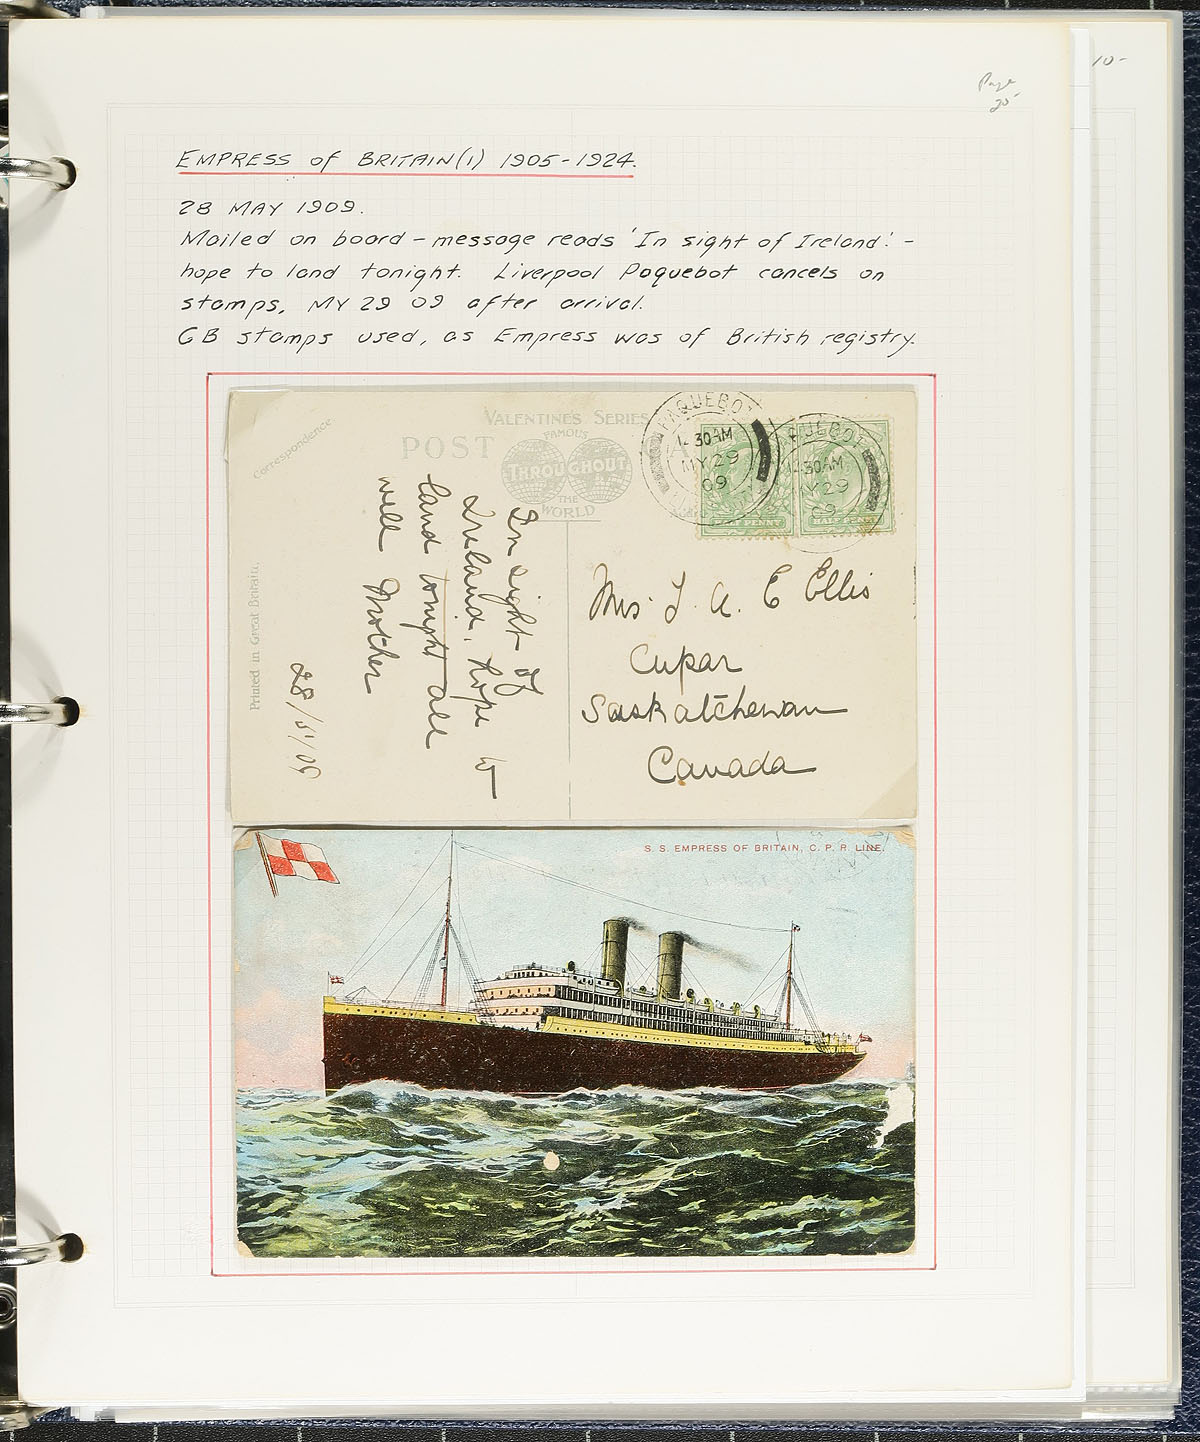 Page
20-
10-
EMPRESS of BRITAIN(1) 1905-1924.
28 MAY 1909.
Mailed on board - message reads 'In sight of Ireland.' -
hope to land tonight. Liverpool Paquebot cancels on
stamps, MY 29 09 after arrival.
GB stamps used, as Empress was of British registry.
Correspondence
VALENTINES SERIES
POST
FAMOUS
THROUGHOUT
THE
WORLD
PAQUEBOT
30AM
MY 29
09
PAQUEBOT
30AM
29
09
HALF PENNY
HALF PENNY
In sight of
Ireland. Hope to
land tonight all
well Mother
28/5/09
Printed in Great Britain.
Mrs J. A. E Ellis
Cupar
Saskatchewan
Canada
S. S. EMPRESS OF BRITAIN, C. P. R. LINE.